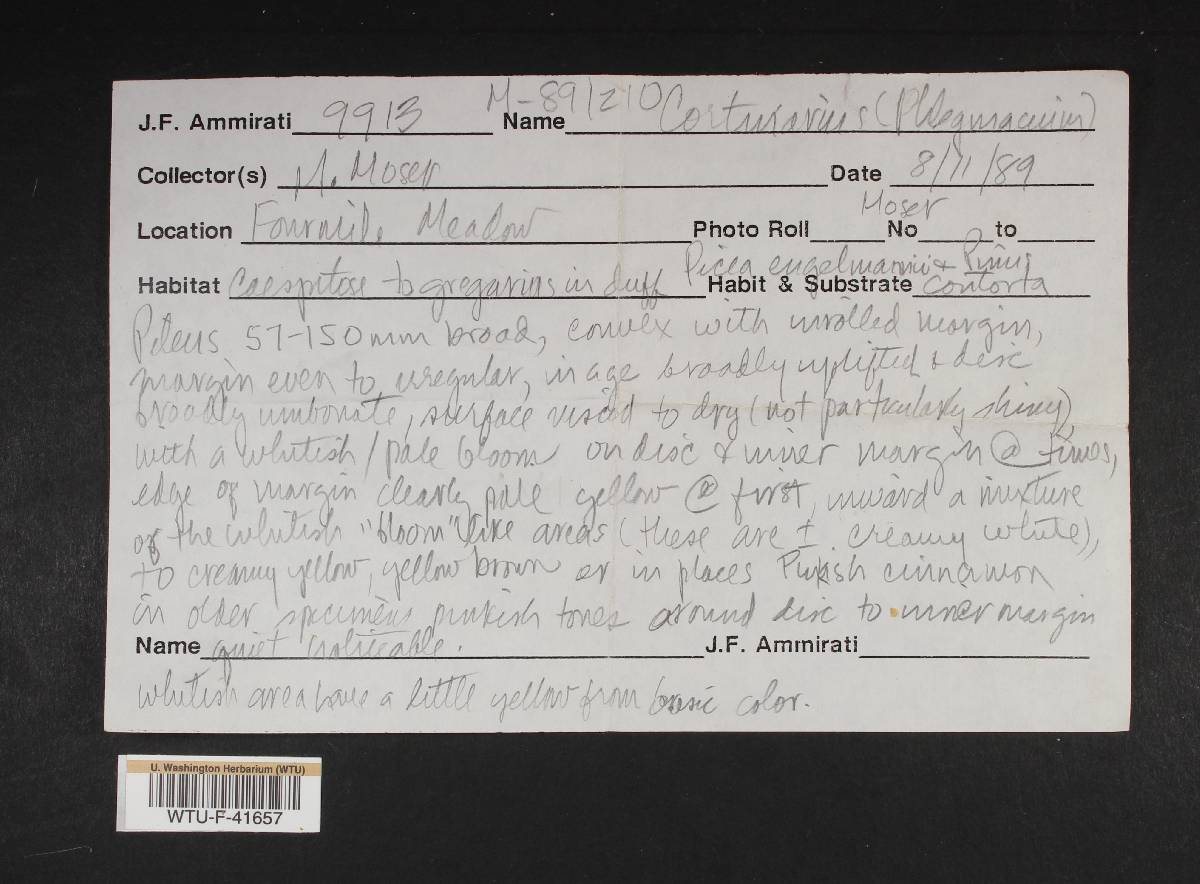 M-89/210
J.F. Ammirati 9913 Name Cortinarius (Phlegmacium)
Collector(s) M. Moser Date 8/11/89
Moser
Location Fourmile Meadow Photo Roll No to
Picea engelmannii & Pinus
Habitat Caespitose to gregarius in duff Habit & Substrate contorta
Pileus 57-150mm broad, convex with inrolled margin,
margin even to irregular, in age broadly uplifted & disc
broadly umbonate, surface viscid to dry (not particularly shiny),
with a whitish/pale bloom on disc & inner margin @ times,
edge of margin clearly pale yellow @ first, inward a mixture
of the whitish "bloom" like areas (these are ± creamy white),
to creamy yellow, yellow brown or in places Pinkish cinnamon
in older specimens pinkish tones around disc to inner margin
Name quiet noticeable. J.F. Ammirati
whitish area have a little yellow from basic color.
U. Washington Herbarium (WTU)
WTU-F-41657